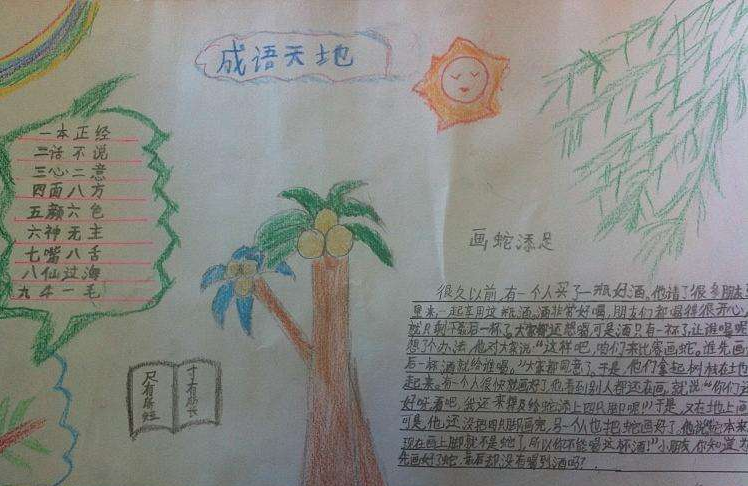 成语天地
一本正经
二话不说
三心二意
四面八方
五颜六色
六神无主
七嘴八舌
八仙过海
九牛一毛
尺有所短
寸有所长
画蛇添足
很久以前,有一个人买了一瓶好酒,他请了很多朋友
里来,一起享用这瓶酒,酒非常好喝,朋友们都喝得很开心
就只剩下最后一杯了,大家都还想喝可是酒只有一杯了,让谁喝呢
想了个办法,他对大家说:"这样吧,咱们来比赛画蛇。谁先画
后一杯酒就给谁喝。"大家都同意了,于是,他们拿起树枝在地
起来。有一个人很快就画好了,他看到别人都还在画,就说:"你们
好呀,看吧,我还来得及给蛇添上四只脚呢!"于是,又在地上画
可是,他还没把四只脚画完,另一个人也把蛇画好了,他说:"蛇本来
现在画上脚就不是蛇了,所以你不能喝这杯酒!"小朋友,你知道为
先画好了蛇,最后却没有喝到酒吗?